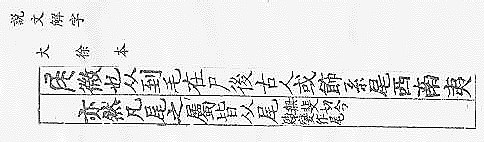 説文解字
大徐本
尾微也从到毛在尸後古人或飾系尾西南夷
亦然凡尾之屬皆从尾
無斐切今
隸變作尾